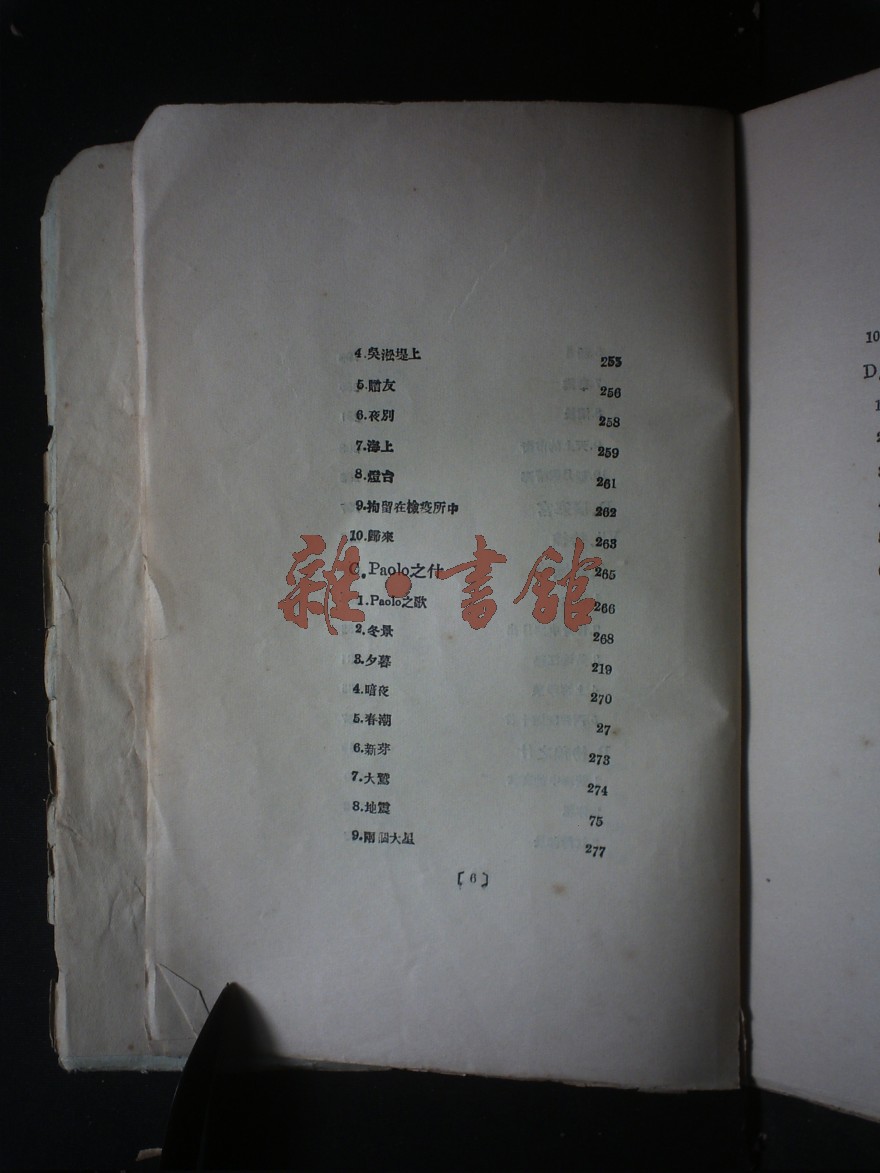 4.吳淞堤上 253
5.贈友 256
6.夜別 258
7.海上 259
8.燈台 261
9.拘留在檢疫所中 262
10.歸來 263
C.Paolo之什 265
1.Paolo之歌 266
2.冬景 268
3.夕暮 219
4.暗夜 270
5.春潮 27
6.新芽 273
7.大鷲 274
8.地震 75
9.兩個大星 277
〔6〕
雜·書館
10
D.